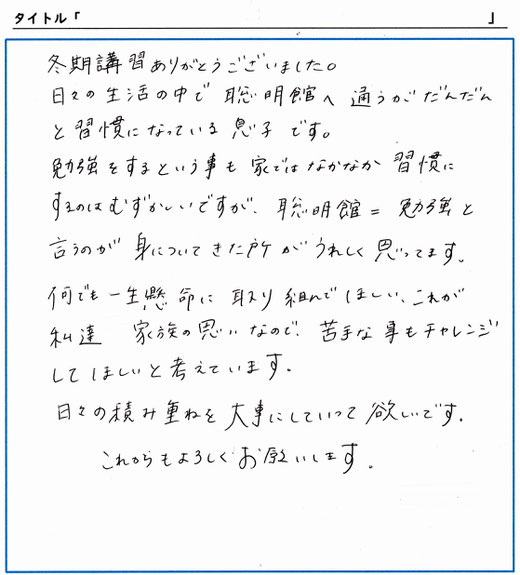 タイトル「　　　　　　　　　　」
冬期講習ありがとうございました。
日々の生活の中で 聡明館へ 通うがだんだん
と習慣になっている息子です。
勉強をするという事も家ではなかなか 習慣に
するのはむずかしいですが、聡明館＝勉強と
言うのが身についてきた所がうれしく思ってます。
何でも一生懸命に取り組んでほしい、これが
私達 家族の思いなので、苦手な事もチャレンジ
してほしいと考えています。
日々の積み重ねを大事にしていって欲しいです。
これからもよろしくお願いします。